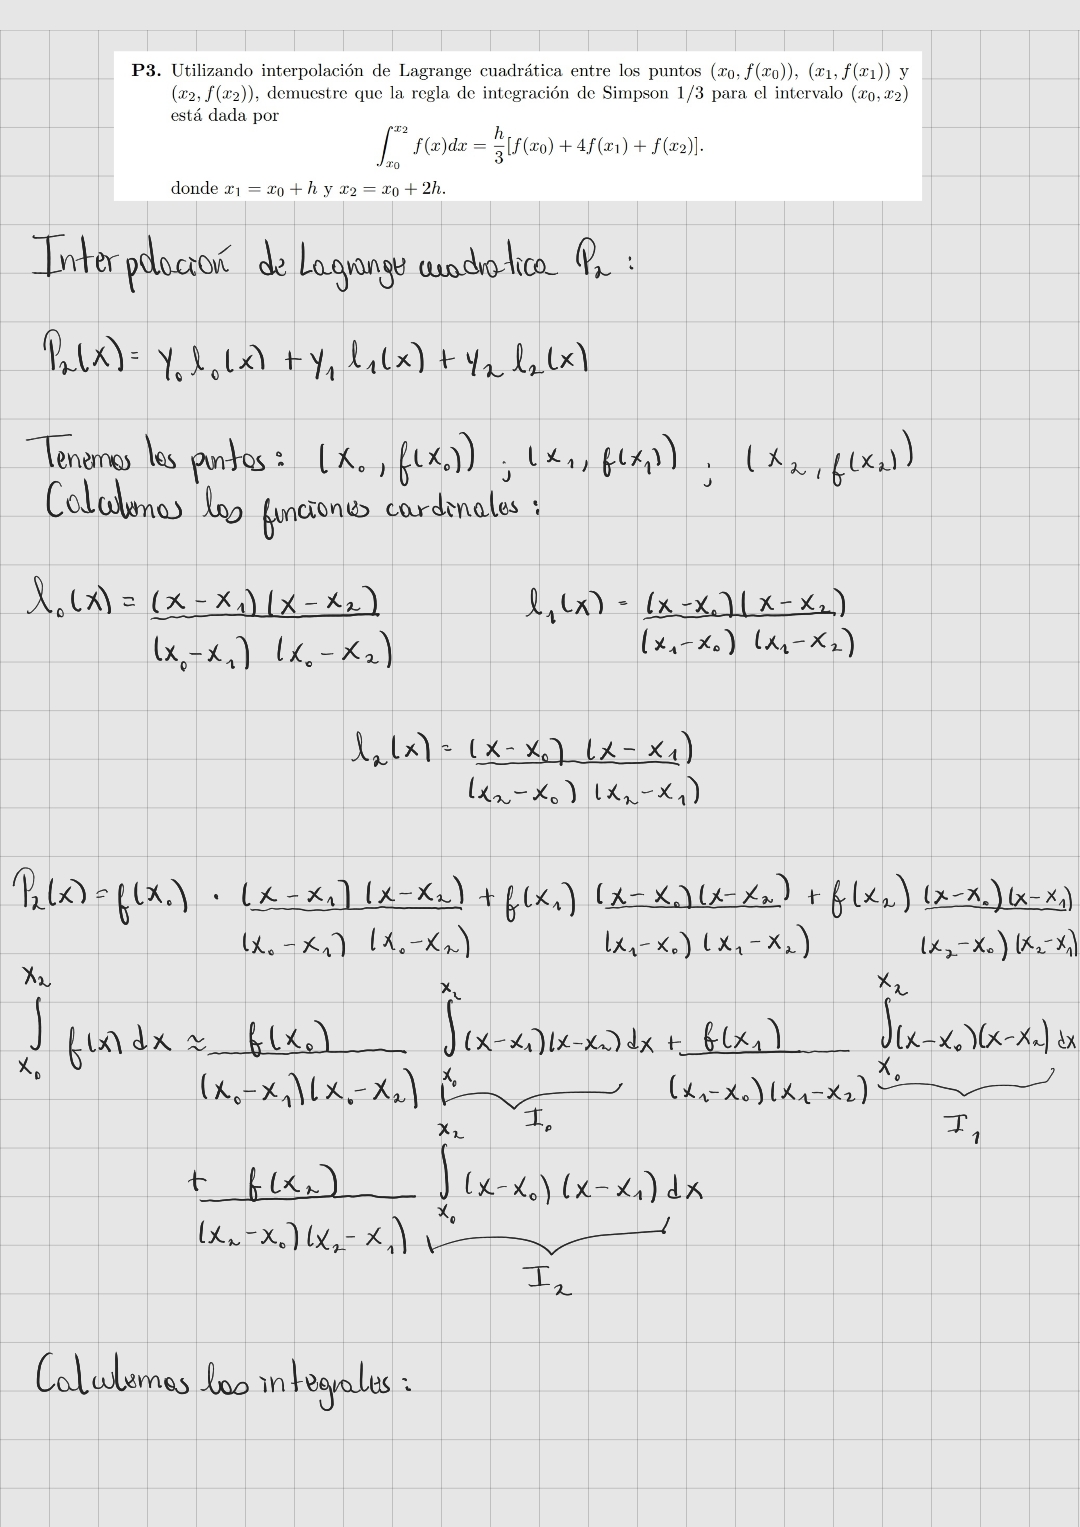 P3. Utilizando interpolación de Lagrange cuadrática entre los puntos (x₀, f(x₀)), (x₁, f(x₁)) y
(x₂, f(x₂)), demuestre que la regla de integración de Simpson 1/3 para el intervalo (x₀, x₂)
está dada por
∫_{x₀}^{x₂} f(x)dx = h/3 [f(x₀) + 4f(x₁) + f(x₂)].
donde x₁ = x₀ + h y x₂ = x₀ + 2h.
Interpolación de Lagrange cuadratica P₂ :
P₂(x) = y₀ l₀(x) + y₁ l₁(x) + y₂ l₂(x)
Tenemos los puntos : (x₀, f(x₀)) ; (x₁, f(x₁)) ; (x₂, f(x₂))
Calculemos las funciones cardinales :
l₀(x) = (x-x₁)(x-x₂) / (x₀-x₁)(x₀-x₂) l₁(x) = (x-x₀)(x-x₂) / (x₁-x₀)(x₁-x₂)
l₂(x) = (x-x₀)(x-x₁) / (x₂-x₀)(x₂-x₁)
P₂(x) = f(x₀) · (x-x₁)(x-x₂) / (x₀-x₁)(x₀-x₂) + f(x₁) (x-x₀)(x-x₂) / (x₁-x₀)(x₁-x₂) + f(x₂) (x-x₀)(x-x₁) / (x₂-x₀)(x₂-x₁)
∫_{x₀}^{x₂} f(x) dx ≈ f(x₀) / (x₀-x₁)(x₀-x₂) ∫_{x₀}^{x₂} (x-x₁)(x-x₂) dx + f(x₁) / (x₁-x₀)(x₁-x₂) ∫_{x₀}^{x₂} (x-x₀)(x-x₂) dx
I₀ I₁
+ f(x₂) / (x₂-x₀)(x₂-x₁) ∫_{x₀}^{x₂} (x-x₀)(x-x₁) dx
I₂
Calculemos las integrales :